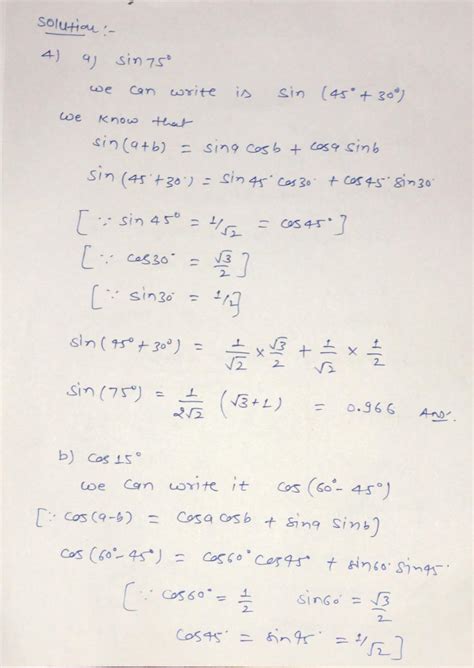 Solution :-
4) a) sin 75°
we can write is sin (45° + 30°)
we know that
sin(a+b) = sina cosb + cosa sinb
sin (45° + 30°) = sin 45° cos30° + cos45° sin30°
[∵ sin 45° = 1/√2 = cos45°]
[∵ cos30° = √3/2]
[∵ sin30° = 1/2]
sin (45° + 30°) = 1/√2 × √3/2 + 1/√2 × 1/2
sin (75°) = 1/2√2 (√3+1) = 0.966 Ans.
b) cos 15°
we can write it cos (60° - 45°)
[∵ cos(a-b) = cosa cosb + sina sinb]
cos (60° - 45°) = cos60° cos45° + sin60° sin45°
[∵ cos60° = 1/2 sin60° = √3/2
cos45° = sin45° = 1/√2]